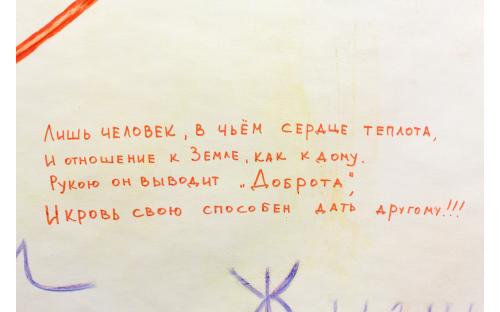 Лишь человек, в чьём сердце теплота,
И отношение к Земле, как к дому.
Рукою он выводит „Доброта",
И кровь свою способен дать другому!!!
Ж